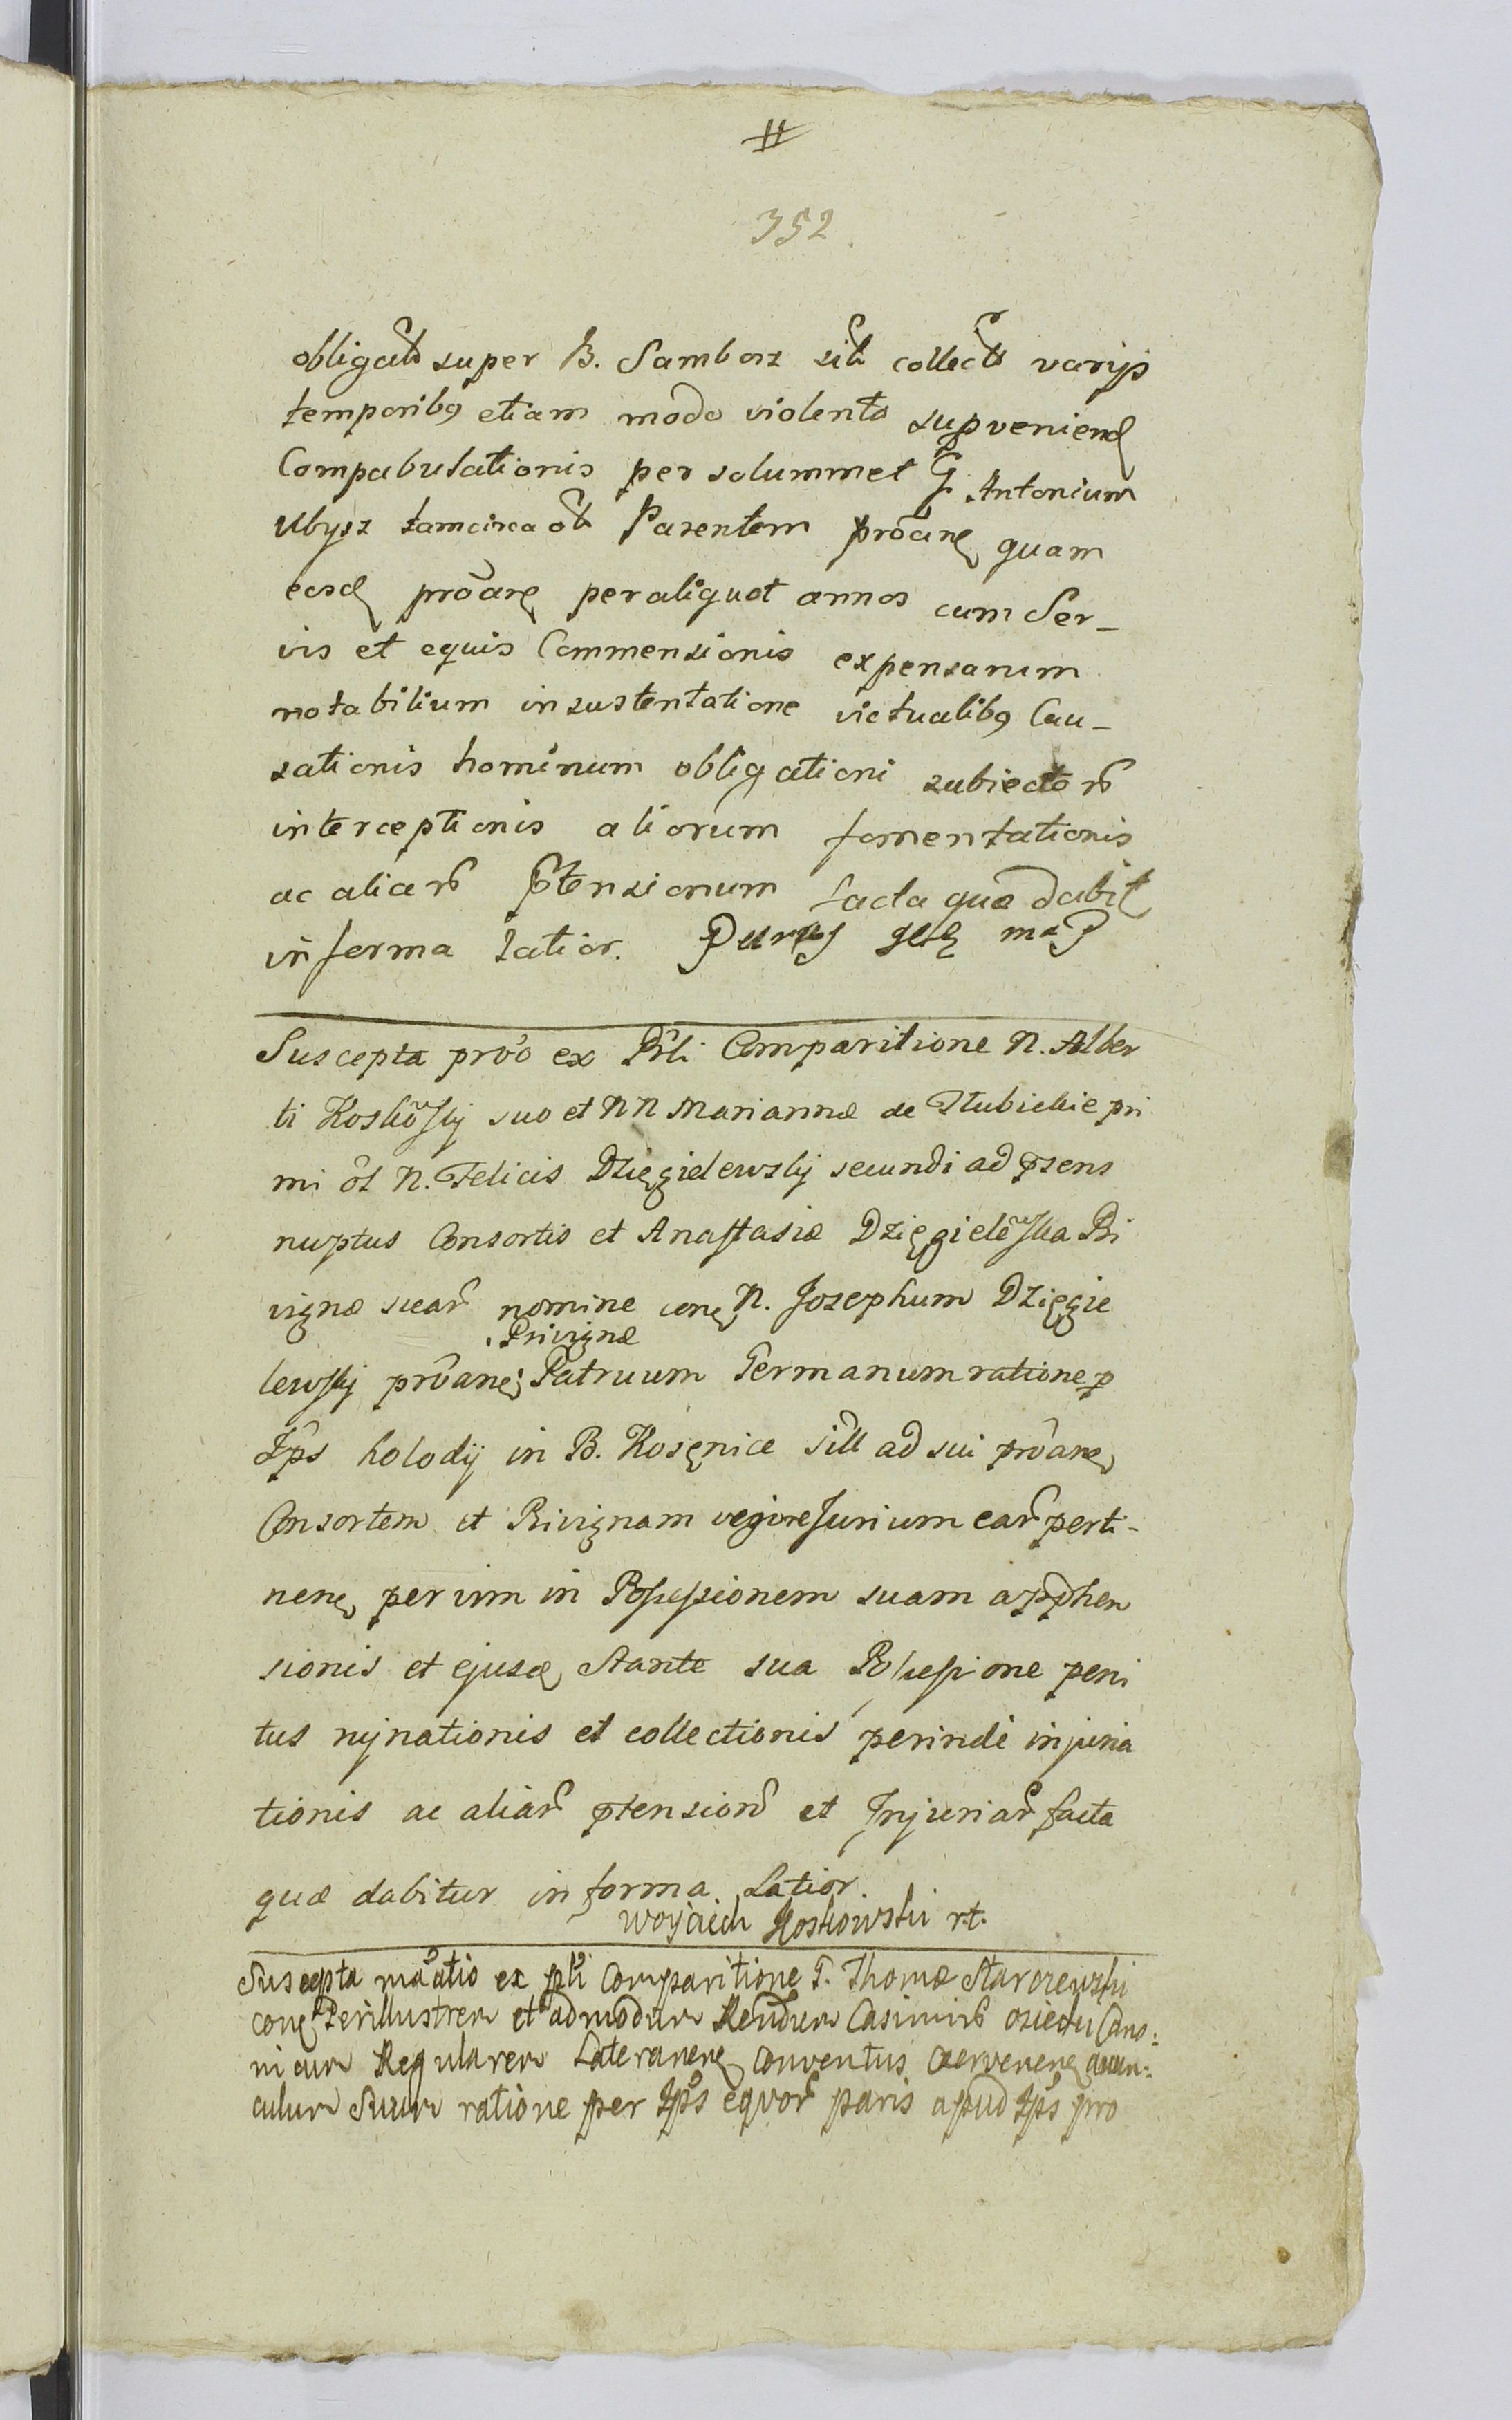 #
352.
obligatô super B. Samborz sitĩ collectĩ varijs
temporibq etiam modo violento supveniend
Compabulationis per solummet G. Antonium
Ubysz tamcirca ob Parentem prôane quam
eosd prôane peraliquot annos cum Ser-
vis et equis Commensionis expensarum
notabilium in sustentatione victualibq Cau-
sationis hominum obligationi subiectorô
interceptionis aliorum fomentationis
ac aliarô ptensionum facta quæ dabit
in forma latior.
Suscepta prôo ex Pñli Comparitione N. Alber
ti Koskôskij suo et NN Mariannæ de Stubickie pri
mi ôl N. Felicis Dzięgielewskij secundi ad psens
nuptus Consortis et Anastasiæ Dzięgielêwska Pri
vignæ suarô nomine cone N. Josephum Dzięgie
Privignæ
lewskij prôane Patruum Germanum ratione p
Ips holodij in B. Kosęnice sitt ad sui prôane
Consortem et Privignam vegore Jurium earô perti-
nene per vim in Possessionem suam apphen
sionis et ejusd Stante sua Possessione peni
tus rujnationis et collectionis perinde injuria
tionis ac aliarô ptensionô et Injuriarô facta
quæ dabitur in forma Latior.
Woyciech Koskowski r.t.
Suscepta mâatio ex pñli Comparitione G. Thomæ Starczewski
cone Perillustrem et admodum Rendum Casimirô osiecki Cano:
nicum Regularem Lateranene Conventus Czervenene avun:
culum Suum ratione per Ips eqvorô paris apud Ips pro